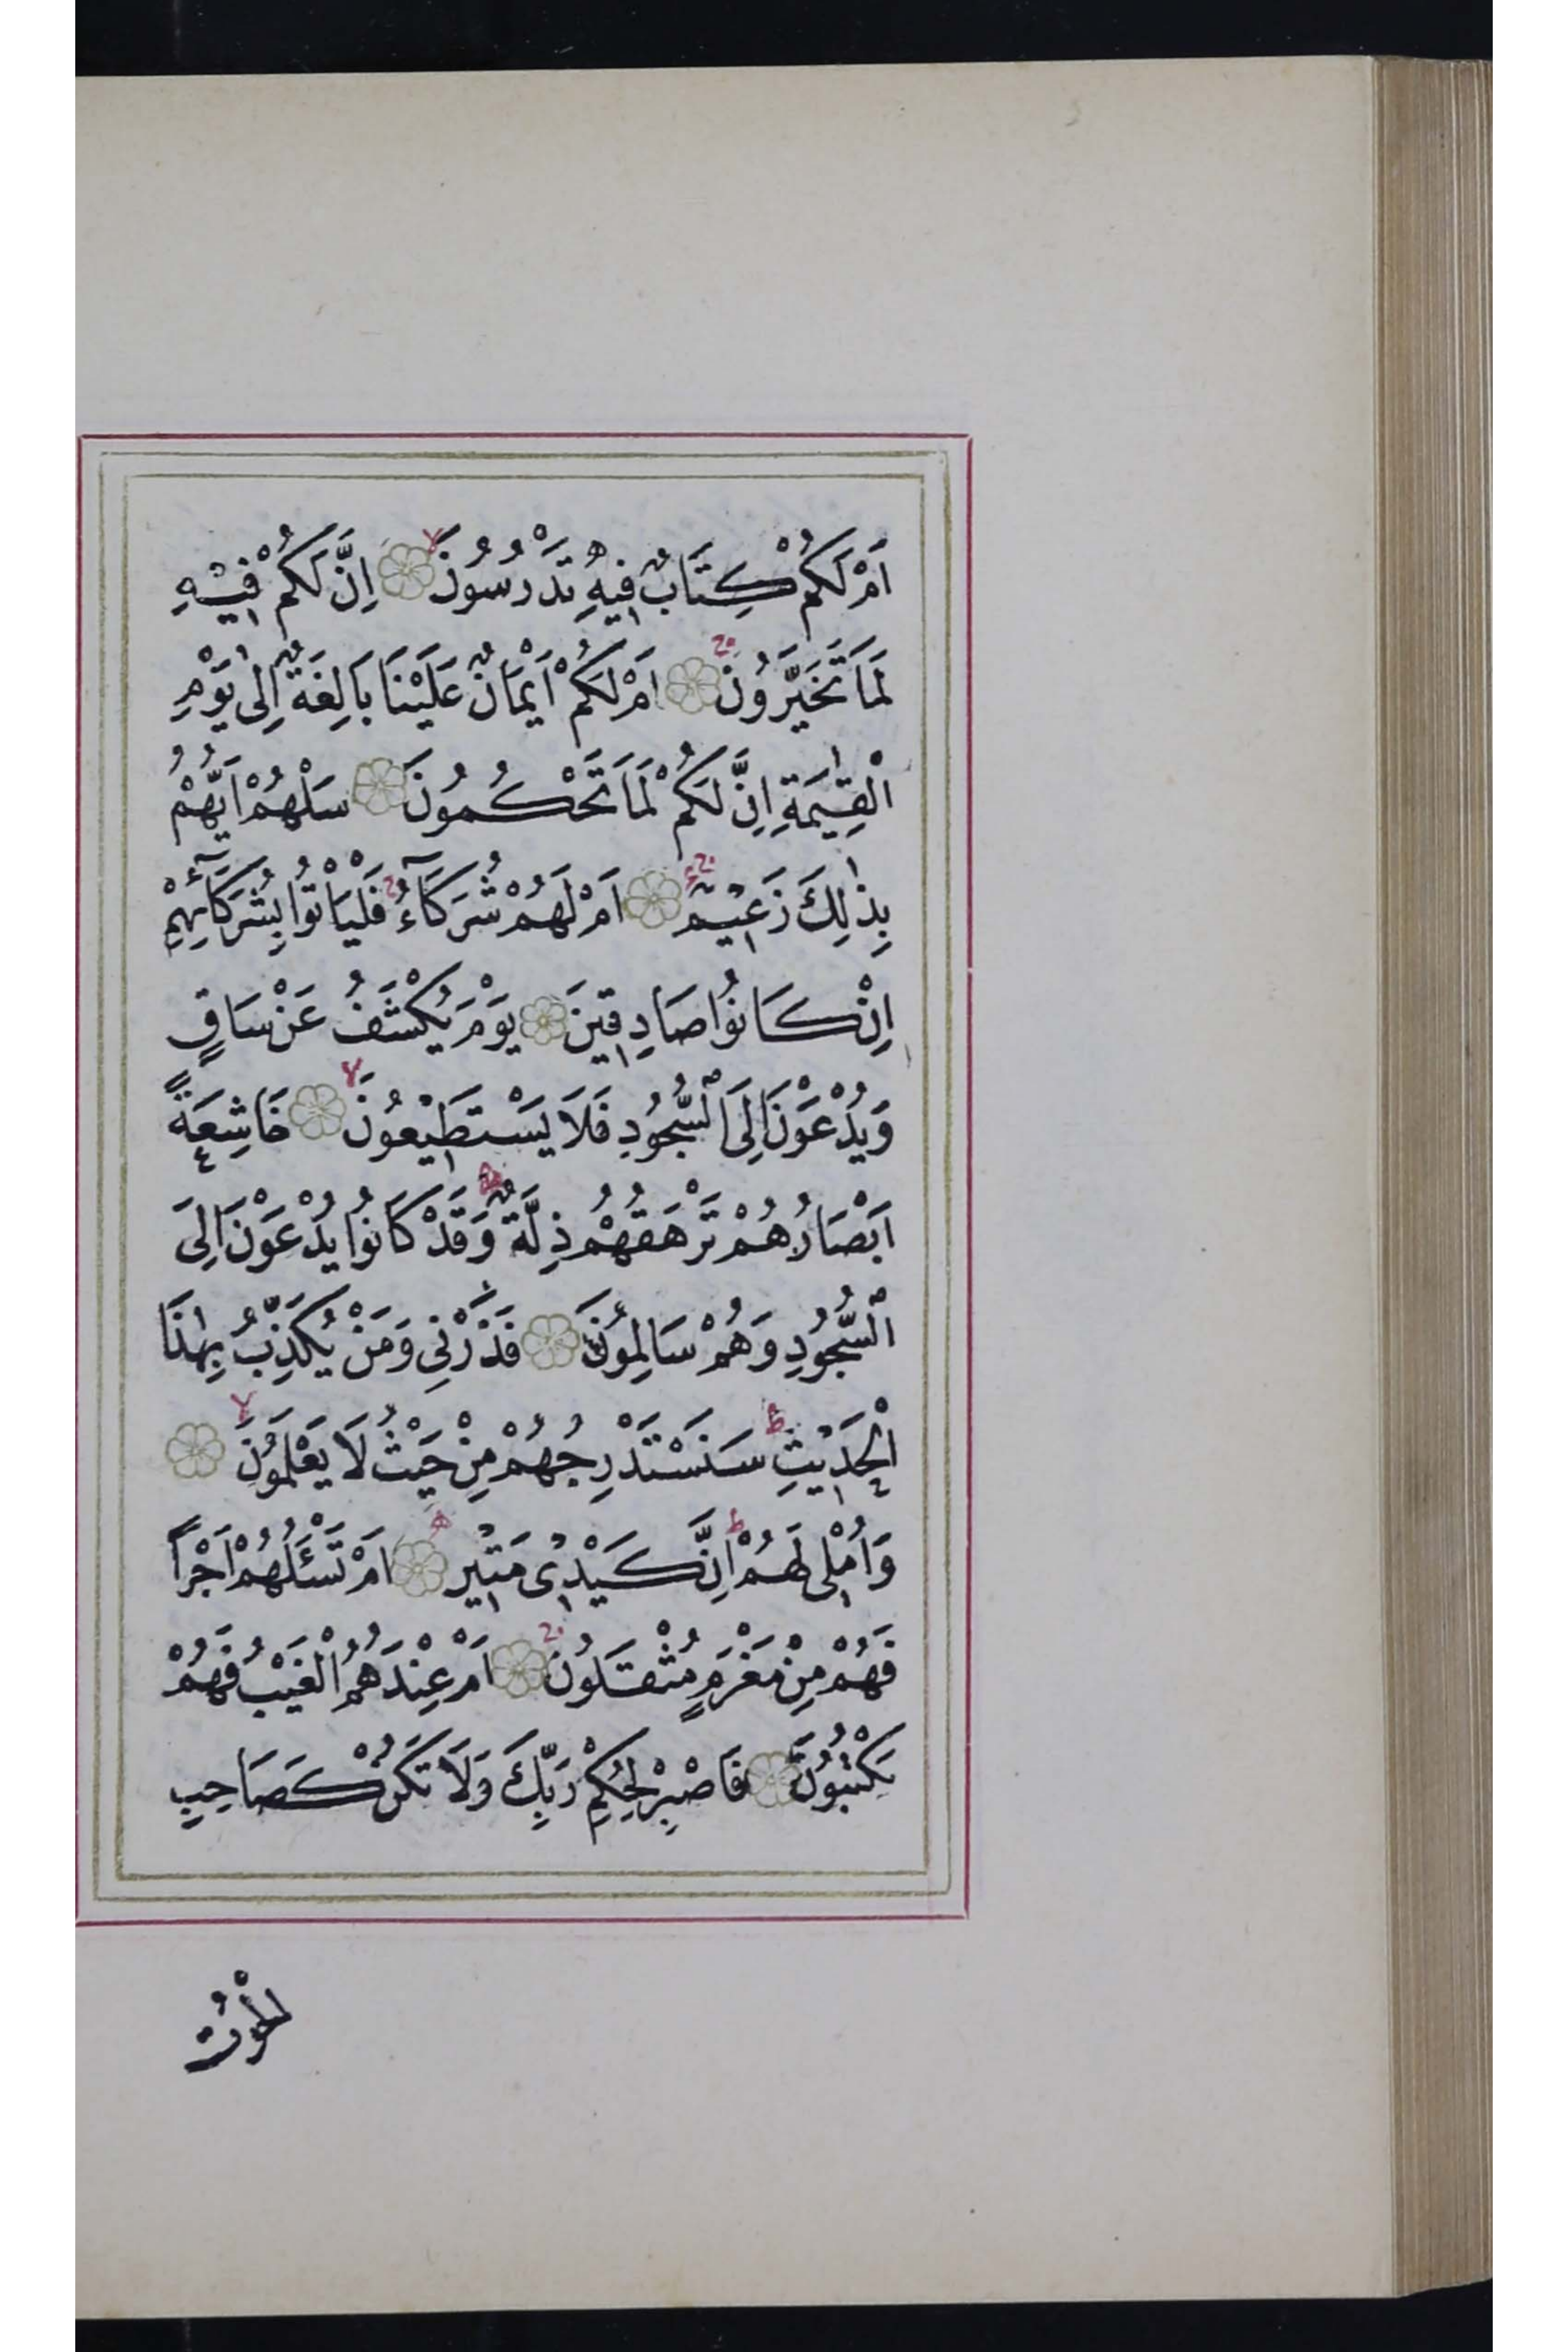 اَمْ لَكُمْ كِتَابٌ فِيهِ تَدْرُسُونَ اِنَّ لَكُمْ فِيْهِ
لَمَا تَخَيَّرُونَ اَمْ لَكُمْ اَيْمَانٌ عَلَيْنَا بَالِغَةٌ اِلٰى يَوْمِ
الْقِيٰمَةِ اِنَّ لَكُمْ لَمَا تَحْكُمُونَ سَلْهُمْ اَيُّهُمْ
بِذٰلِكَ زَعِيْمٌ اَمْ لَهُمْ شُرَكَآءُ فَلْيَاْتُوا بِشُرَكَآئِهِمْ
اِنْ كَانُوا صَادِقِينَ يَوْمَ يُكْشَفُ عَنْ سَاقٍ
وَيُدْعَوْنَ اِلَى السُّجُودِ فَلَا يَسْتَطِيْعُونَ خَاشِعَةً
اَبْصَارُهُمْ تَرْهَقُهُمْ ذِلَّةٌ وَقَدْ كَانُوا يُدْعَوْنَ اِلَى
السُّجُودِ وَهُمْ سَالِمُونَ فَذَرْنِي وَمَنْ يُكَذِّبُ بِهٰذَا
الْحَدِيْثِ سَنَسْتَدْرِجُهُمْ مِنْ حَيْثُ لَا يَعْلَمُونَ
وَاُمْلِي لَهُمْ اِنَّ كَيْدِي مَتِيْنٌ اَمْ تَسْئَلُهُمْ اَجْرًا
فَهُمْ مِنْ مَغْرَمٍ مُثْقَلُونَ اَمْ عِنْدَهُمُ الْغَيْبُ فَهُمْ
يَكْتُبُونَ فَاصْبِرْ لِحُكْمِ رَبِّكَ وَلَا تَكُنْ كَصَاحِبِ
الْحُوْتِ